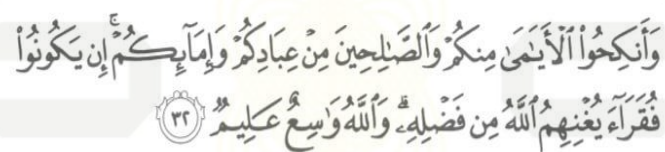 وَأَنكِحُوا۟ ٱلْأَيَـٰمَىٰ مِنكُمْ وَٱلصَّـٰلِحِينَ مِنْ عِبَادِكُمْ وَإِمَآئِكُمْ ۚ إِن يَكُونُوا۟
فُقَرَآءَ يُغْنِهِمُ ٱللَّهُ مِن فَضْلِهِۦ ۗ وَٱللَّهُ وَٰسِعٌ عَلِيمٌ ٣٢